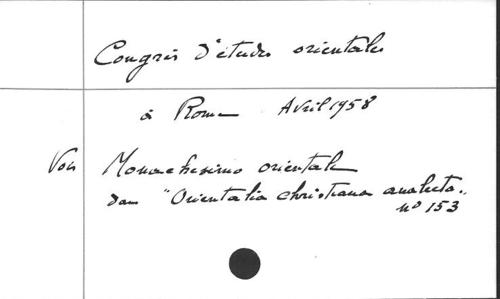 Congrès d'études orientales
à Rome Avril 1958
Voir Monachesimo orientale
dans "Orientalia christiana analecta"
nº 153